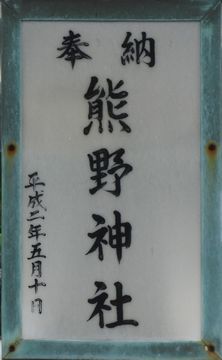 奉納
熊野神社
平成二年五月十日